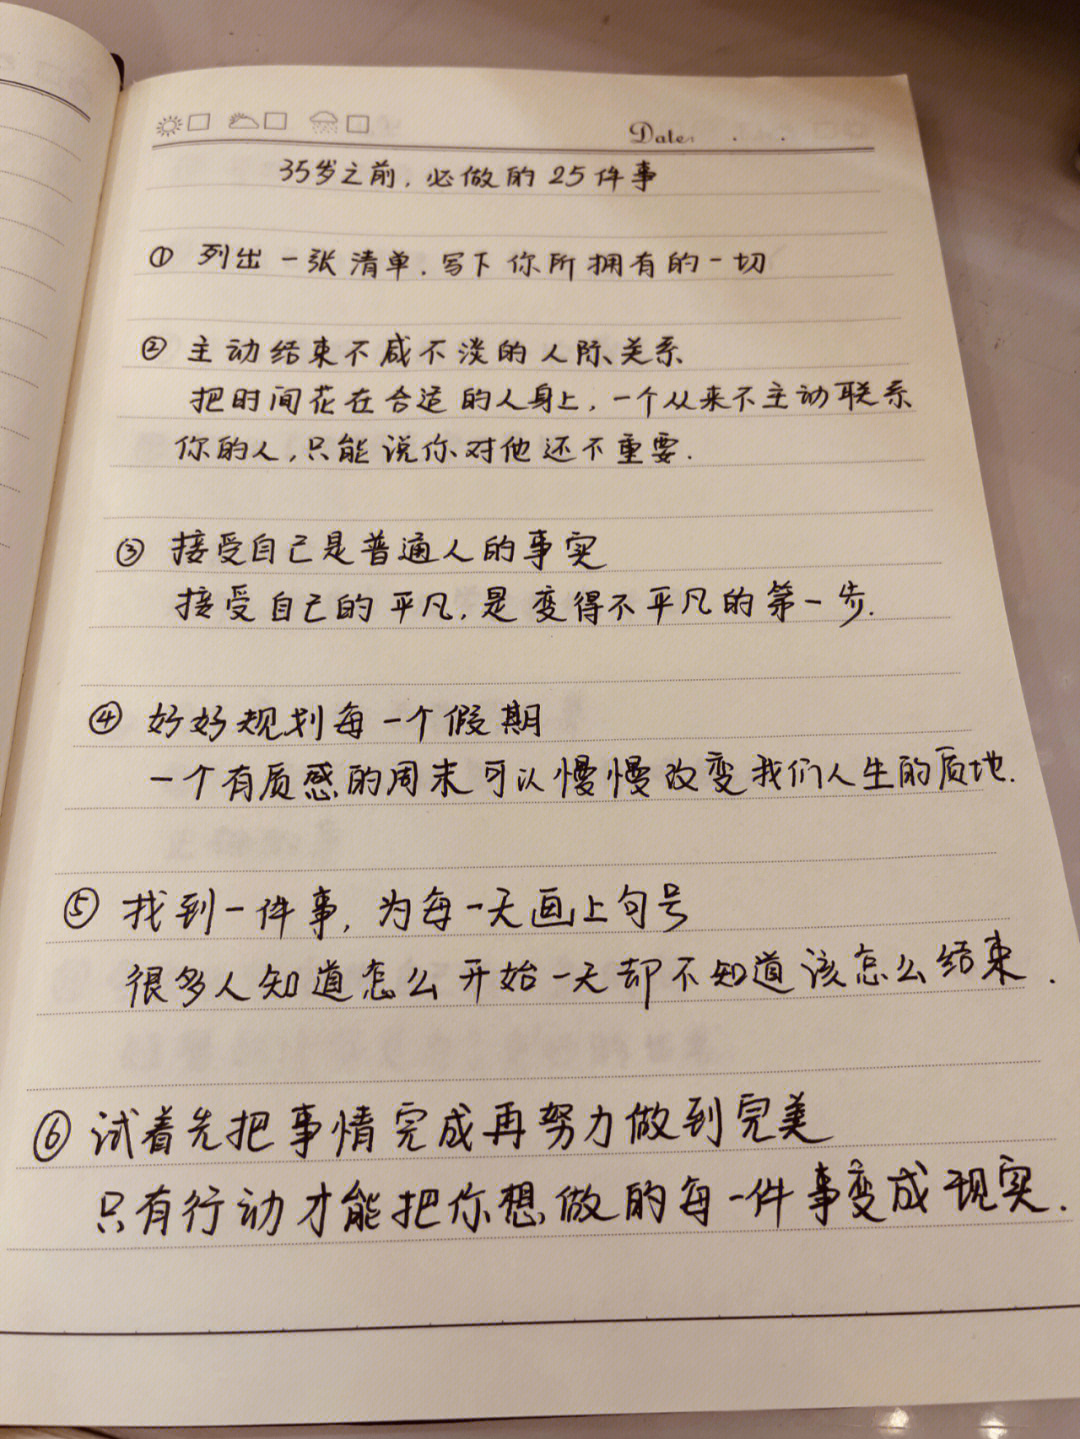 Date: . .
35岁之前,必做的25件事
① 列出一张清单.写下你所拥有的一切
② 主动结束不咸不淡的人际关系
把时间花在合适的人身上,一个从来不主动联系
你的人,只能说你对他还不重要.
③ 接受自己是普通人的事实
接受自己的平凡,是变得不平凡的第一步.
④ 好好规划每一个假期
一个有质感的周末可以慢慢改变我们人生的质地.
⑤ 找到一件事,为每一天画上句号
很多人知道怎么开始一天却不知道该怎么结束.
⑥ 试着先把事情完成再努力做到完美
只有行动才能把你想做的每一件事变成现实.